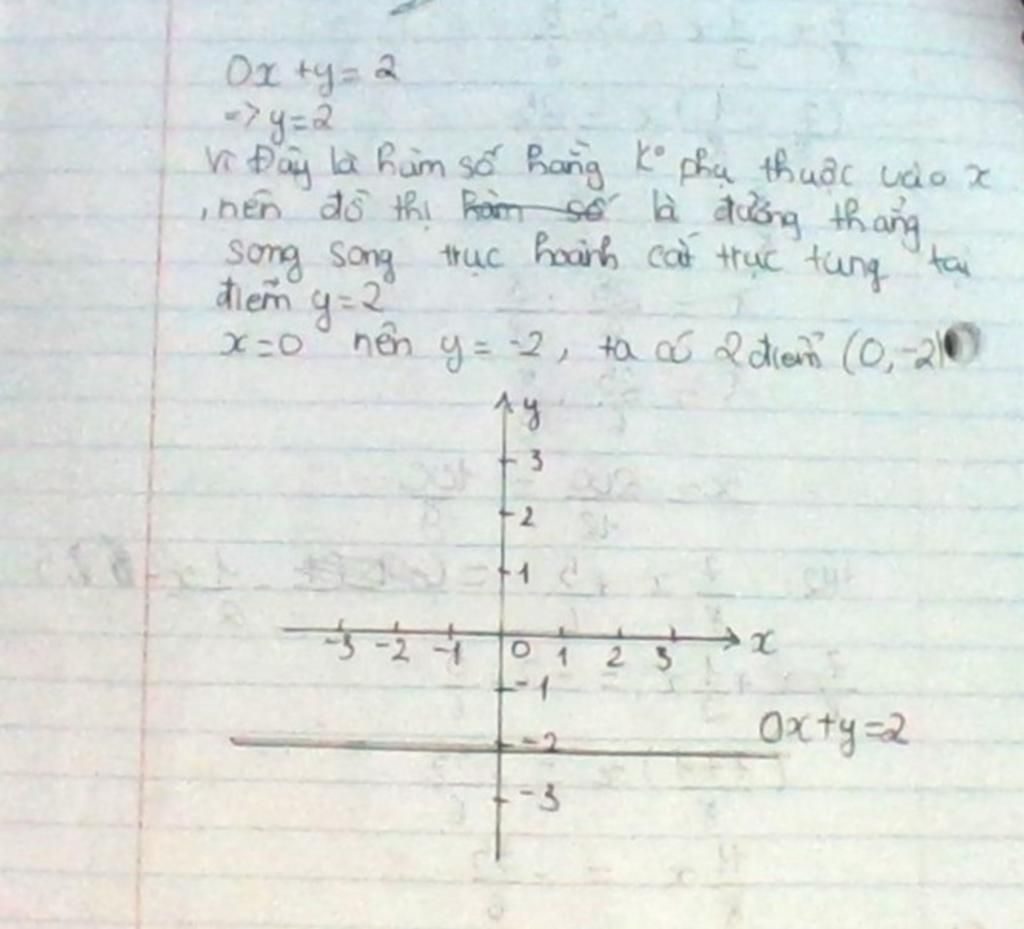 0x + y = 2
=> y = 2
Vì Đây là hàm số hằng k° phụ thuộc vào x
, nên đồ thị hàm số là đường thẳng
song song trục hoành cắt trục tung tại
điểm y = 2
x = 0 nên y = -2, ta có 2 điểm (0, -2)
y
3
2
1
-3 -2 -1 0 1 2 3 x
-1
0x + y = 2
-2
-3